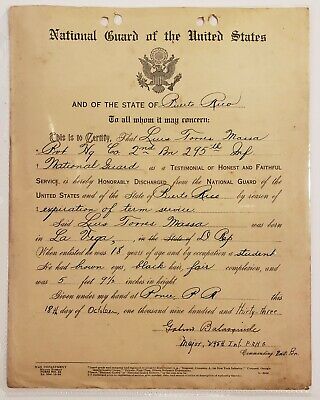 National Guard of the United States
AND OF THE STATE OF Puerto Rico
To all whom it may concern:
This is to Certify, That Luis Torres Massa
Pvt Hq Co 2nd Bn 295th Inf
National Guard AS A TESTIMONIAL OF HONEST AND FAITHFUL
SERVICE, is hereby HONORABLY DISCHARGED from the NATIONAL GUARD OF THE
UNITED STATES and of the State of Puerto Rico by reason of
expiration of term service
Said Luis Torres Massa was born
in La Vega, in the State of D Rep
When enlisted he was 18 years of age and by occupation a student
He had brown eyes black hair, fair complexion, and
was 5 feet 9½ inches in height
Given under my hand at Ponce, P R this
18th day of October, one thousand nine hundred and thirty three
Major, 295th Inf PRNG
Commanding
WAR DEPARTMENT